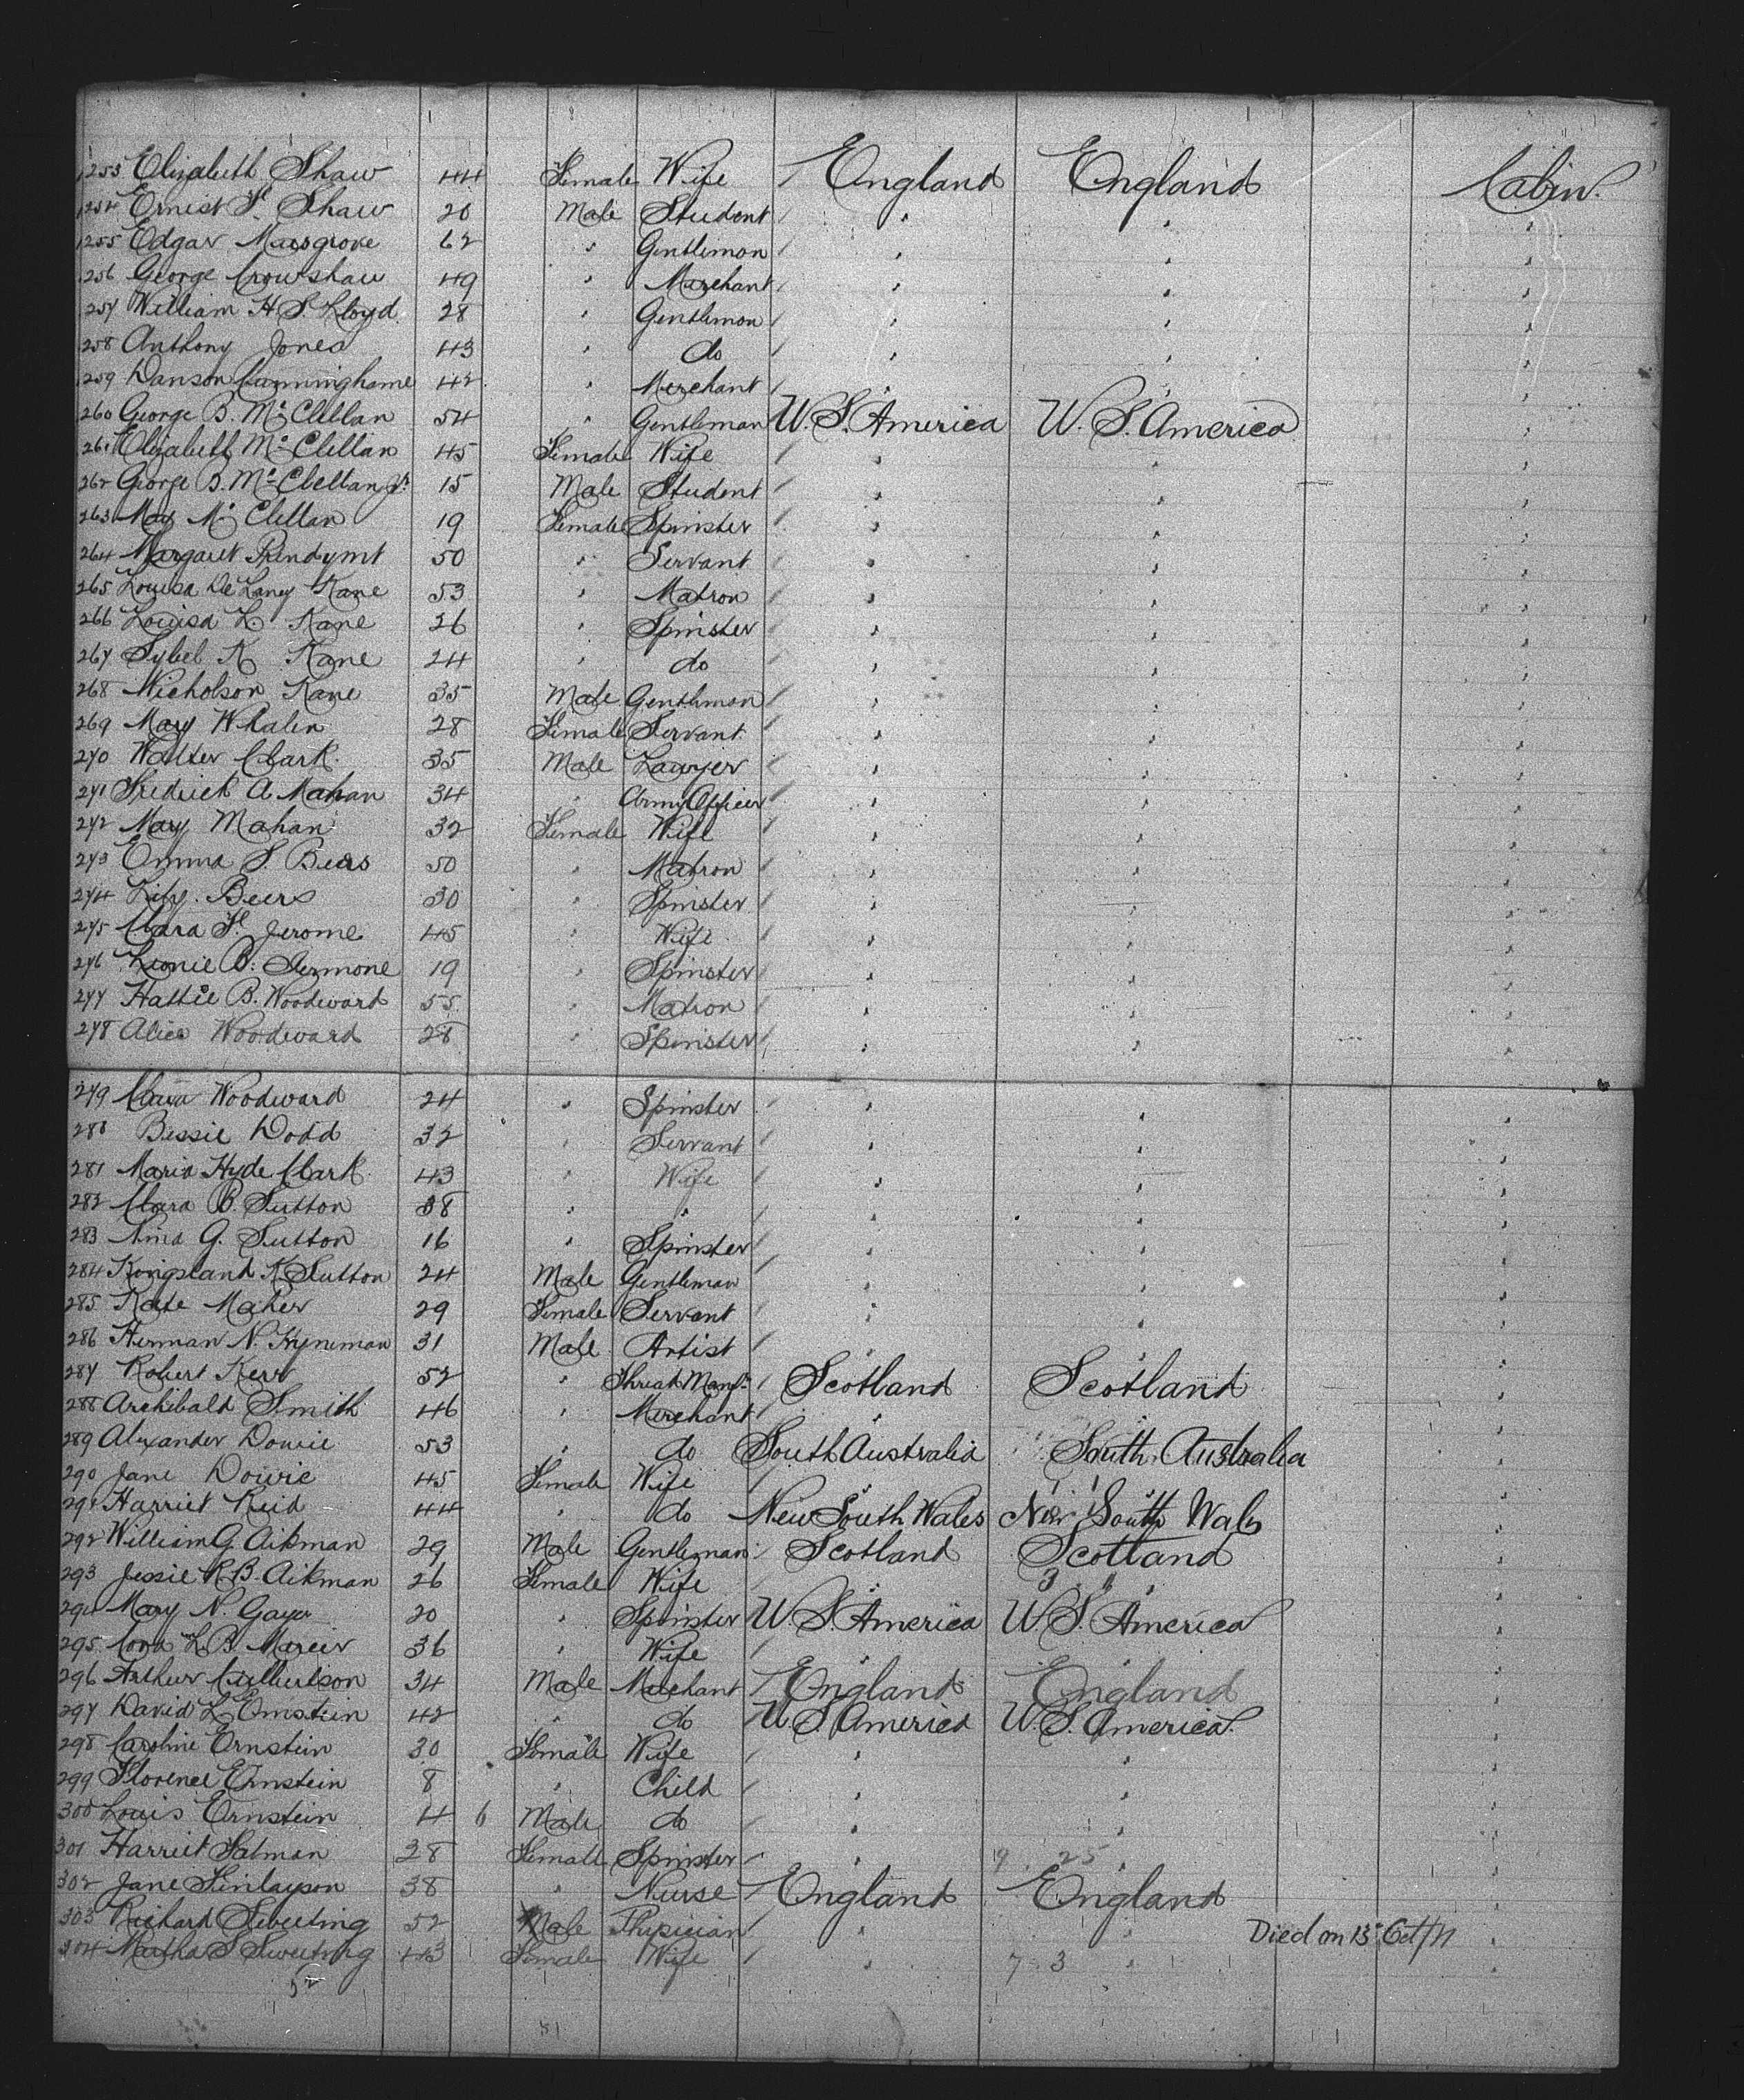 253 Elizabeth Shaw 44 Female Wife / England England Cabin.
254 Ernest F. Shaw 20 Male Student / " " "
255 Edgar Musgrove 62 " Gentleman / " " "
256 George Crowshaw 49 " Merchant / " " "
257 William H S Lloyd 28 " Gentleman / " " "
258 Anthony Jones 43 " do / " " "
259 Danson Cunninghame 42 " Merchant / " " "
260 George B. McClellan 54 " Gentleman U.S. America U.S. America "
261 Elizabeth McClellan 45 Female Wife / " " "
262 George B. McClellan Jr 15 Male Student / " " "
263 May McClellan 19 Female Spinster / " " "
264 Margaret 50 " Servant / " " "
265 Louisa De Laney Kane 53 " Matron / " " "
266 Louisa L. Kane 26 " Spinster / " " "
267 Sybel K Kane 24 " do / " " "
268 Nicholson Kane 35 Male Gentleman / " " "
269 Mary Whalen 28 Female Servant / " " "
270 Walter Clark 35 Male Lawyer / " " "
271 Fredrick A Mahan 34 " Army Officer / " " "
272 May Mahan 32 Female Wife / " " "
273 Emma S. Beers 50 " Matron / " " "
274 Lizy. Beers 30 " Spinster / " " "
275 Clara H. Jerome 45 " Wife / " " "
276 Leonie B. Jermone 19 " Spinster / " " "
277 Hattie B. Woodward 55 " Matron / " " "
278 Alice Woodward 28 " Spinster / " " "
279 Clara Woodward 24 " Spinster / " " "
280 Bessie Dodd 32 " Servant / " " "
281 Maria Hyde Clark 43 " Wife / " " "
282 Clara B. Sutton 38 " " / " " "
283 Nina G. Sutton 16 " Spinster / " " "
284 Kingsland K Sutton 24 Male Gentleman / " " "
285 Kate Maher 29 Female Servant / " " "
286 Herman N. Hyneman 31 Male Artist / " " "
287 Robert Kerr 52 " Thread Manfr / Scotland Scotland "
288 Archibald Smith 46 " Merchant / " " "
289 Alexander Dowie 53 " do South Australia South Australia "
290 Jane Dowie 45 Female Wife / " " "
291 Harriet Reid 44 " do New South Wales New South Wales "
292 William G. Aikman 29 Male Gentleman / Scotland Scotland "
293 Jessie R. B. Aikman 26 Female Wife / " 3 " " "
294 Mary N. 20 " Spinster U.S. America U.S. America "
295 Cora L. B. 36 " Wife / " " "
296 Arthur Cuthbertson 34 Male Merchant / England England "
297 David L Ornstein 42 " do / U.S. America U.S. America. "
298 Caroline Ornstein 30 Female Wife / " " "
299 Florence Ornstein 8 " Child / " " "
300 Louis Ornstein 4 6 Male do / " " "
301 Harriet Salmon 28 Female Spinster / " 9 25 " "
302 Jane Finlayson 38 " Nurse / England England "
303 Richard Sweeting 52 Male Physician / " " Died on 13th Oct/ "
304 Martha S Sweeting 43 Female Wife / " 7 3 " "
52
51